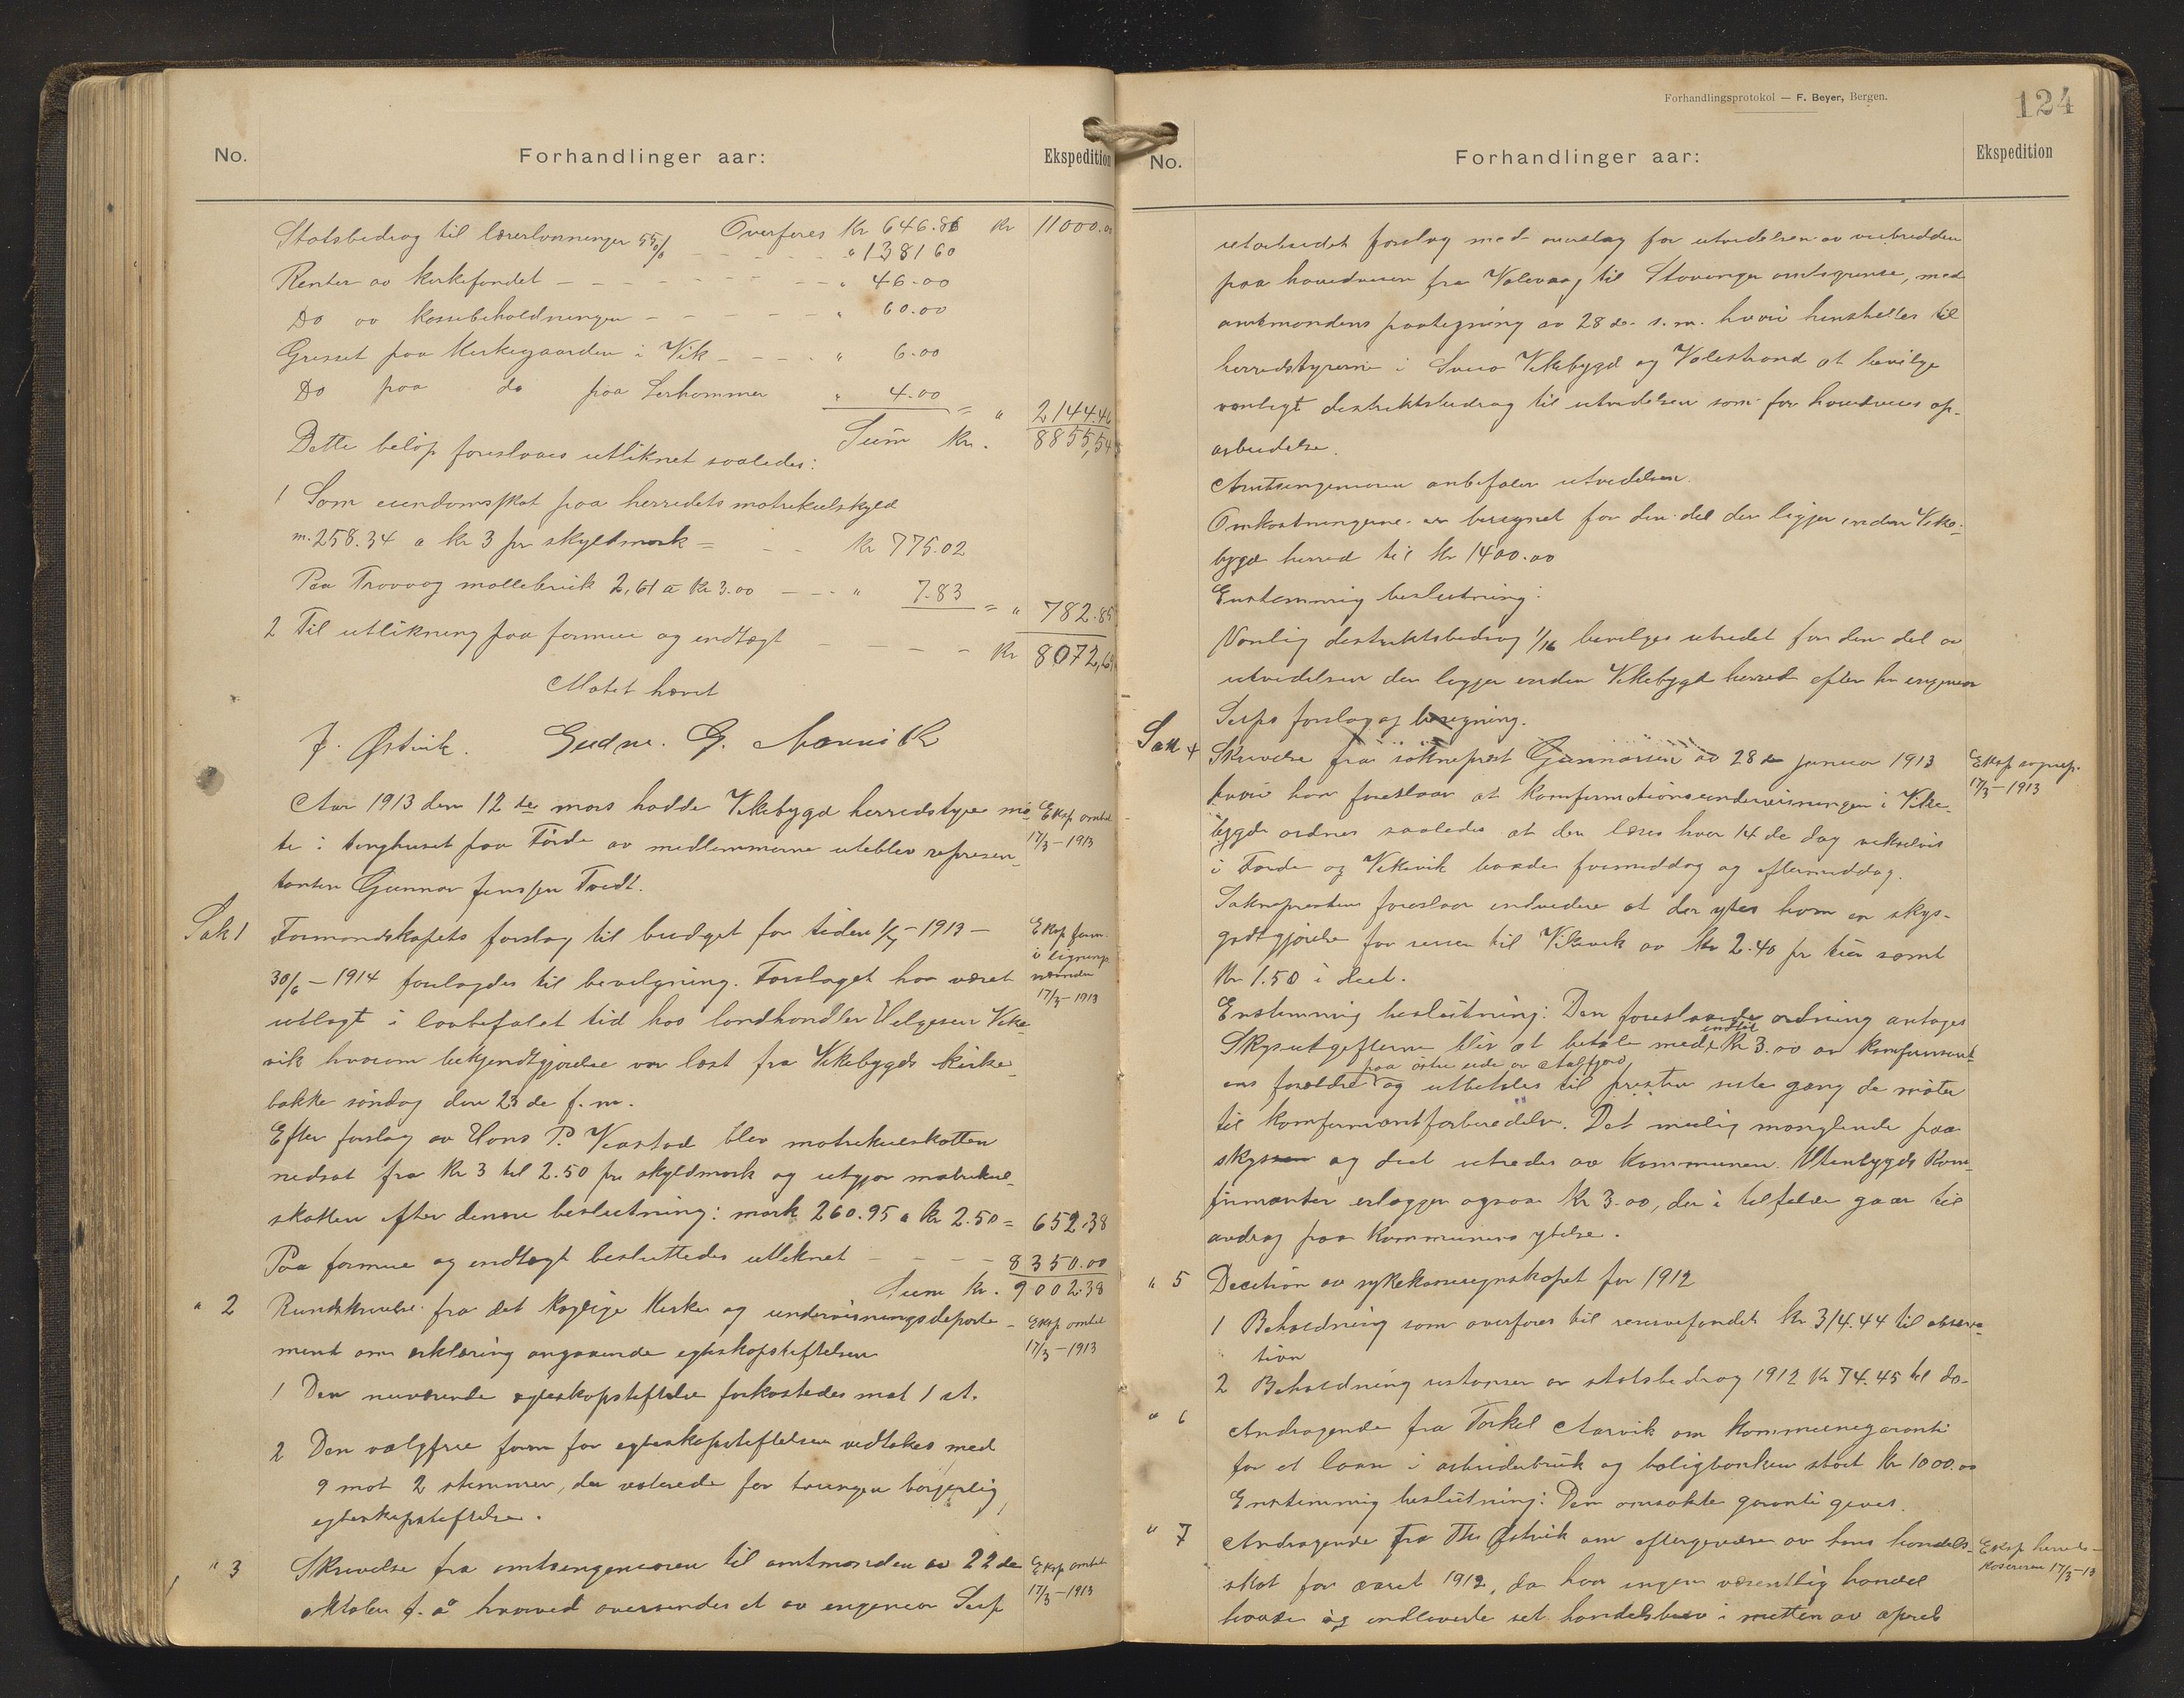 No. Forhandlinger aar: Ekspedition
Overføres Kr 646.86 Kr 11000.00
Statsbedrag til lærerlønninger 55% - - - " 1381 60
Renter av kirkefondet - - - - - - " 46.00
Do av kassebeholdningen - - - - - " 60.00
Gresset paa Kirkegaarden i Vik - - - - " 6.00
Do paa do paa " 4.00 = " 2144.46
Sum Kr. 8855,54
Dette beløp foreslaaes utliknet saaledes:
1 Som eiendomsskat paa herredets matrikulskyld
m. 258.34 a kr 3 pr skyldmark = - - Kr 775.02
Paa Trovaag møllebruk 2,61 a Kr 3.00 - - - " 7.83 = " 782.85
2 Til utlikning paa formue og indtægt - - - - Kr 8072,69
Møtet hævet
J. Østvik. Gudm. G.
Aar 1913 den 12te mars hadde Vikebygd herredstyre mø-
te i tinghuset paa Førde av medlemmerne uteblev represen-
tanten Gunnar Jenssen Tvedt.
Eksp amtet
17/3-1913
Sak 1 Formandskapets forslag til budget for tiden 1/7-1913-
30/6-1914 forelagdes til bevilgning. Forslaget har været
utlagt i lovbefalet tid hos landhandler Helgesen Vike-
vik hvorom bekjendtgjørelse var læst fra Vikebygds kirke-
bakke søndag den 23de f.m.
Eksp form.
i lignings
nævnden
17/3-1913
Efter forslag av Hans P. blev matrikulskatten
nedsat fra Kr 3 til 2.50 pr skyldmark og utgjør matrikul-
skatten efter denne beslutning: mark 260.95 a Kr 2.50 = 652.38
Paa formue og indtægt besluttedes utliknet - - - 8350.00
Sum Kr. 9002.38
" 2 Rundskrivelse fra det kgl. Kirke og undervisningsdeparte-
ment om erklæring angaaende egteskapstiftelsen
Eksp amtet
17/3-1913
1 Den nuværende egteskapstiftelse forkastedes mot 1 st.
2 Den valgfrie form for egteskapstiftelsen vedtokes med
9 mot 2 stemmer, der voterede for tvungen borgerlig
egteskapstiftelse.
" 3 Skrivelse fra amtsingeniøren til amtmanden av 22de
oktober f.å. hvorved oversendes et av ingeniør Seip
Eksp amtet
17/3-1913
Forhandlingsprotokol — F. Beyer, Bergen.
124
No. Forhandlinger aar: Ekspedition
utarbeidet forslag med overslag for utvidelsen av veibredden
paa hovedveien fra Valevaag til Stavanger amtsgrense, med
amtmandens paategning av 28de s.m. hvori henstilles til
herredstyrerne i Sveio Vikebygd og Valestrand at bevilge
vanligt distriktsbidrag til utvidelsen som for hovedveies op-
arbeidelse.
Amtsingeniøren anbefaler utvidelsen.
Omkostningerne er beregnet for den del der ligger inden Vike-
bygd herred til Kr 1400.00
Enstemmig beslutning:
Vanlig distriktsbidrag 1/16 bevilges utredet for den del av
utvidelsen der ligger inden Vikebygd herred efter hr ingeniør
Seips forslag og beregning.
Sak 4 Skrivelse fra sokneprest Gunnarsen av 28de januar 1913
hvori han foreslaar at konfirmationsundervisningen i Vike-
bygd ordnes saaledes at der læses hver 14de dag vekselvis
i Førde og Vikevik baade formiddag og eftermiddag.
Eksp sognep.
17/3-1913
Soknepresten foreslaar endvidere at der ytes ham en skys-
godtgjørelse for reisen til Vikevik av kr 2.40 pr tur samt
Kr 1.50 i diæt.
Enstemmig beslutning: Den foreslaaede ordning antages
Skysutgifterne blir at betale med indtil Kr 3.00 av konfirmant-
ens forældre paa østre side av Aalfjord og utbetales til presten siste gang de møter
til konfirmantforberedelse. Det mulig manglende paa
skyssen og diæt utredes av kommunen. Utenbygds kon-
firmanter erlægger ogsaa Kr 3.00, der i tilfælde gaar til
avdrag paa kommunens ytelse.
" 5 Decition av sykekasseregnskapet for 1912
1 Beholdning som overføres til reservefondet kr. 314.44 til observa-
tion
2 Beholdning restanser av statsbedrag 1912 Kr 74.45 til do-
" 6 Andragende fra Torkel Aarvik om kommunegaranti
for et laan i arbeiderbruk og boligbanken stort Kr 1000.00
Enstemmig beslutning: Den omsøkte garanti gives.
" 7 Andragende fra Ths Østvik om eftergivelse av hans handels-
skat for aaret 1912, da han ingen væsentlig handel
havde og indleverte sit handelsbrev i midten av april
Eksp herreds-
kassereren 17/3-13